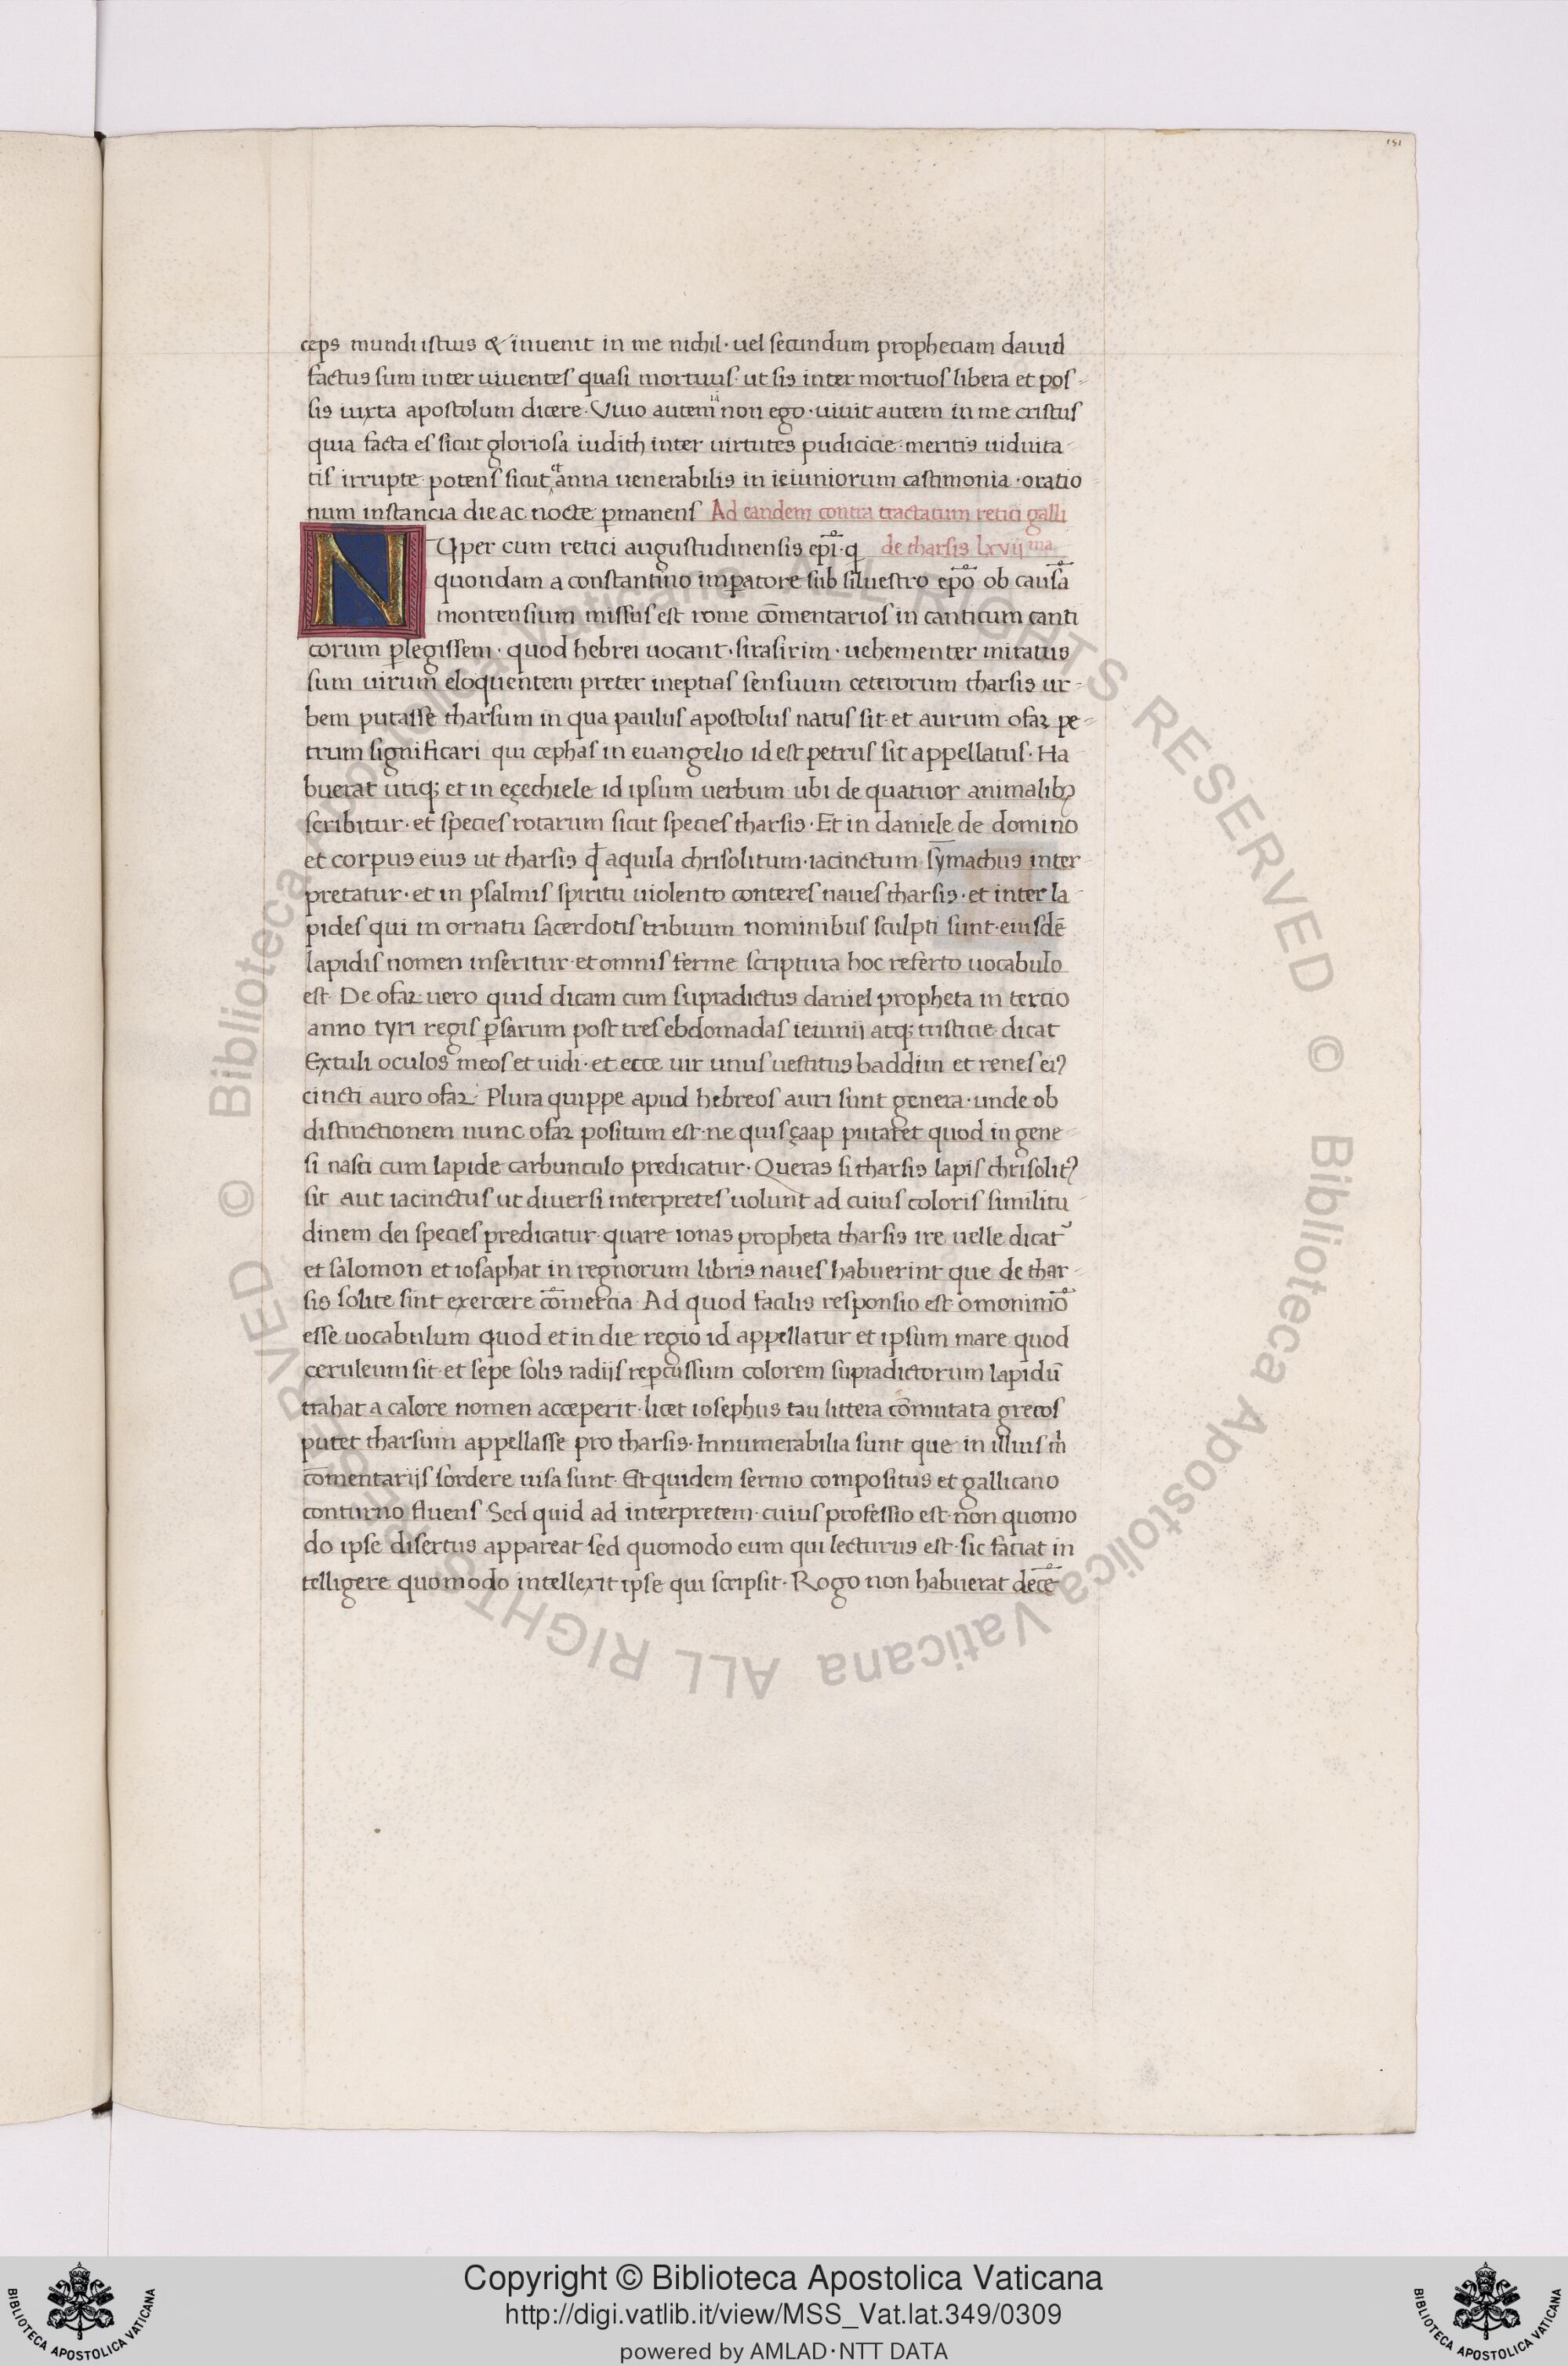 151
ceps mundi istius & inuenit in me nichil· uel secundum propheciam dauid
factus sum inter uiuentes quasi mortuus· ut sis inter mortuos libera et pos-
sis iuxta apostolum dicere· Viuo autem iā non ego· uiuit autem in me cristus
quia facta es sicut gloriosa iudith inter uirtutes pudicicie· meritis uiduita-
tis irrupte· potens sicut et anna uenerabilis in ieiuniorum castimonia· oratio-
num instancia die ac nocte p̱manens Ad eandem contra tractatum retici galli
NUper cum retici augustudinensis ep̄i· q de tharsis lxvij ma
quondam a constantino imp̱atore sub siluestro ep̄o ob causā
montensium missus est rome cōmentarios in canticum canti
corum p̱legissem· quod hebrei uocant· sirasirim· uehementer miratus
sum uirum eloquentem preter ineptias sensuum ceterorum tharsis ur-
bem putasse tharsum in qua paulus apostolus natus sit· et aurum ofaz pe-
trum significari qui cephas in euangelio id est petrus sit appellatus· Ha
buerat utiq; et in eçechiele id ipsum uerbum ubi de quatuor animalibꝫ
scribitur· et species rotarum sicut species tharsis· Et in daniele de domino
et corpus eius ut tharsis qđ aquila chrisolitum· iacinctum sȳmachus inter
pretatur· et in psalmis spiritu uiolento conteres naues tharsis· et inter la-
pides qui in ornatu sacerdotis tribuum nominibus sculpti sunt· eiusdē
lapidis nomen inseritur· et omnis ferme scriptura hoc referto uocabulo
est· De ofaz uero quid dicam cum supradictus daniel propheta in tercio
anno tyri regis p̱sarum post tres ebdomadas ieiunij atq; tristicie dicat
Extuli oculos meos et uidi· et ecce uir unus uestitus baddim et renes eiꝰ
cincti auro ofaz· Plura quippe apud hebreos auri sunt genera· unde ob
distinctionem nunc ofaz positum est· ne quis çaap putaret quod in gene-
si nasci cum lapide carbunculo predicatur· Queras si tharsis lapis chrisolitꝰ
sit aut iacinctus ut diuersi interpretes uolunt ad cuius coloris similitu-
dinem dei species predicatur· quare ionas propheta tharsis ire uelle dicat᷑
et salomon et iosaphat in regnorum libris naues habuerint que de thar-
sis solite sint exercere cōmercia· Ad quod facilis responsio est omonimō
esse uocabulum quod et in die regio id appellatur et ipsum mare quod
ceruleum sit· et sepe solis radijs rep̱cussum colorem supradictorum lapidū
trahat a calore nomen acceperit· licet iosephus tau littera cōmutata grecos
putet tharsum appellasse pro tharsis· Innumerabilia sunt que in illius m̊
cōmentarijs sordere uisa sunt· Et quidem sermo compositus et gallicano
conturno fluens Sed quid ad interpretem· cuius professio est· non quomo
do ipse disertus appareat sed quomodo eum qui lecturus est· sic faciat in
telligere quomodo intellexit ipse qui scripsit· Rogo non habuerat decē
© Biblioteca Apostolica Vaticana ALL RIGHTS RESERVED
© Biblioteca Apostolica Vaticana ALL RIGHTS RESERVED
Copyright © Biblioteca Apostolica Vaticana
http://digi.vatlib.it/view/MSS_Vat.lat.349/0309
powered by AMLAD·NTT DATA
BIBLIOTECA APOSTOLICA VATICANA
BIBLIOTECA APOSTOLICA VATICANA